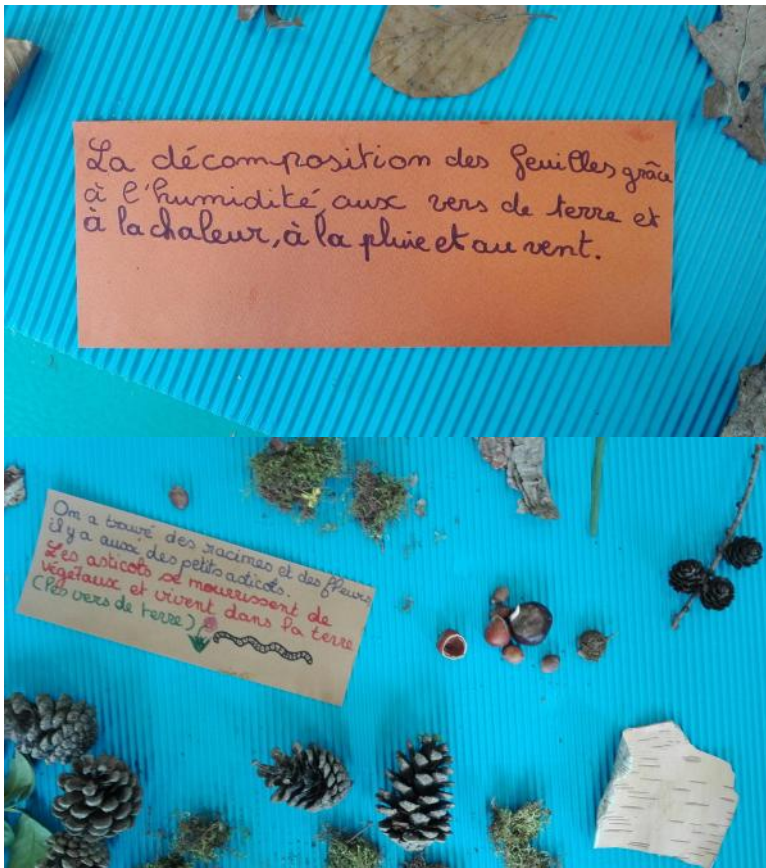 La décomposition des feuilles grâce
à l'humidité, aux vers de terre et
à la chaleur, à la pluie et au vent.
On a trouvé des racines et des fleurs
il y a aussi des petits asticots.
Les asticots se nourrissent de
végétaux et vivent dans la terre
(les vers de terre)